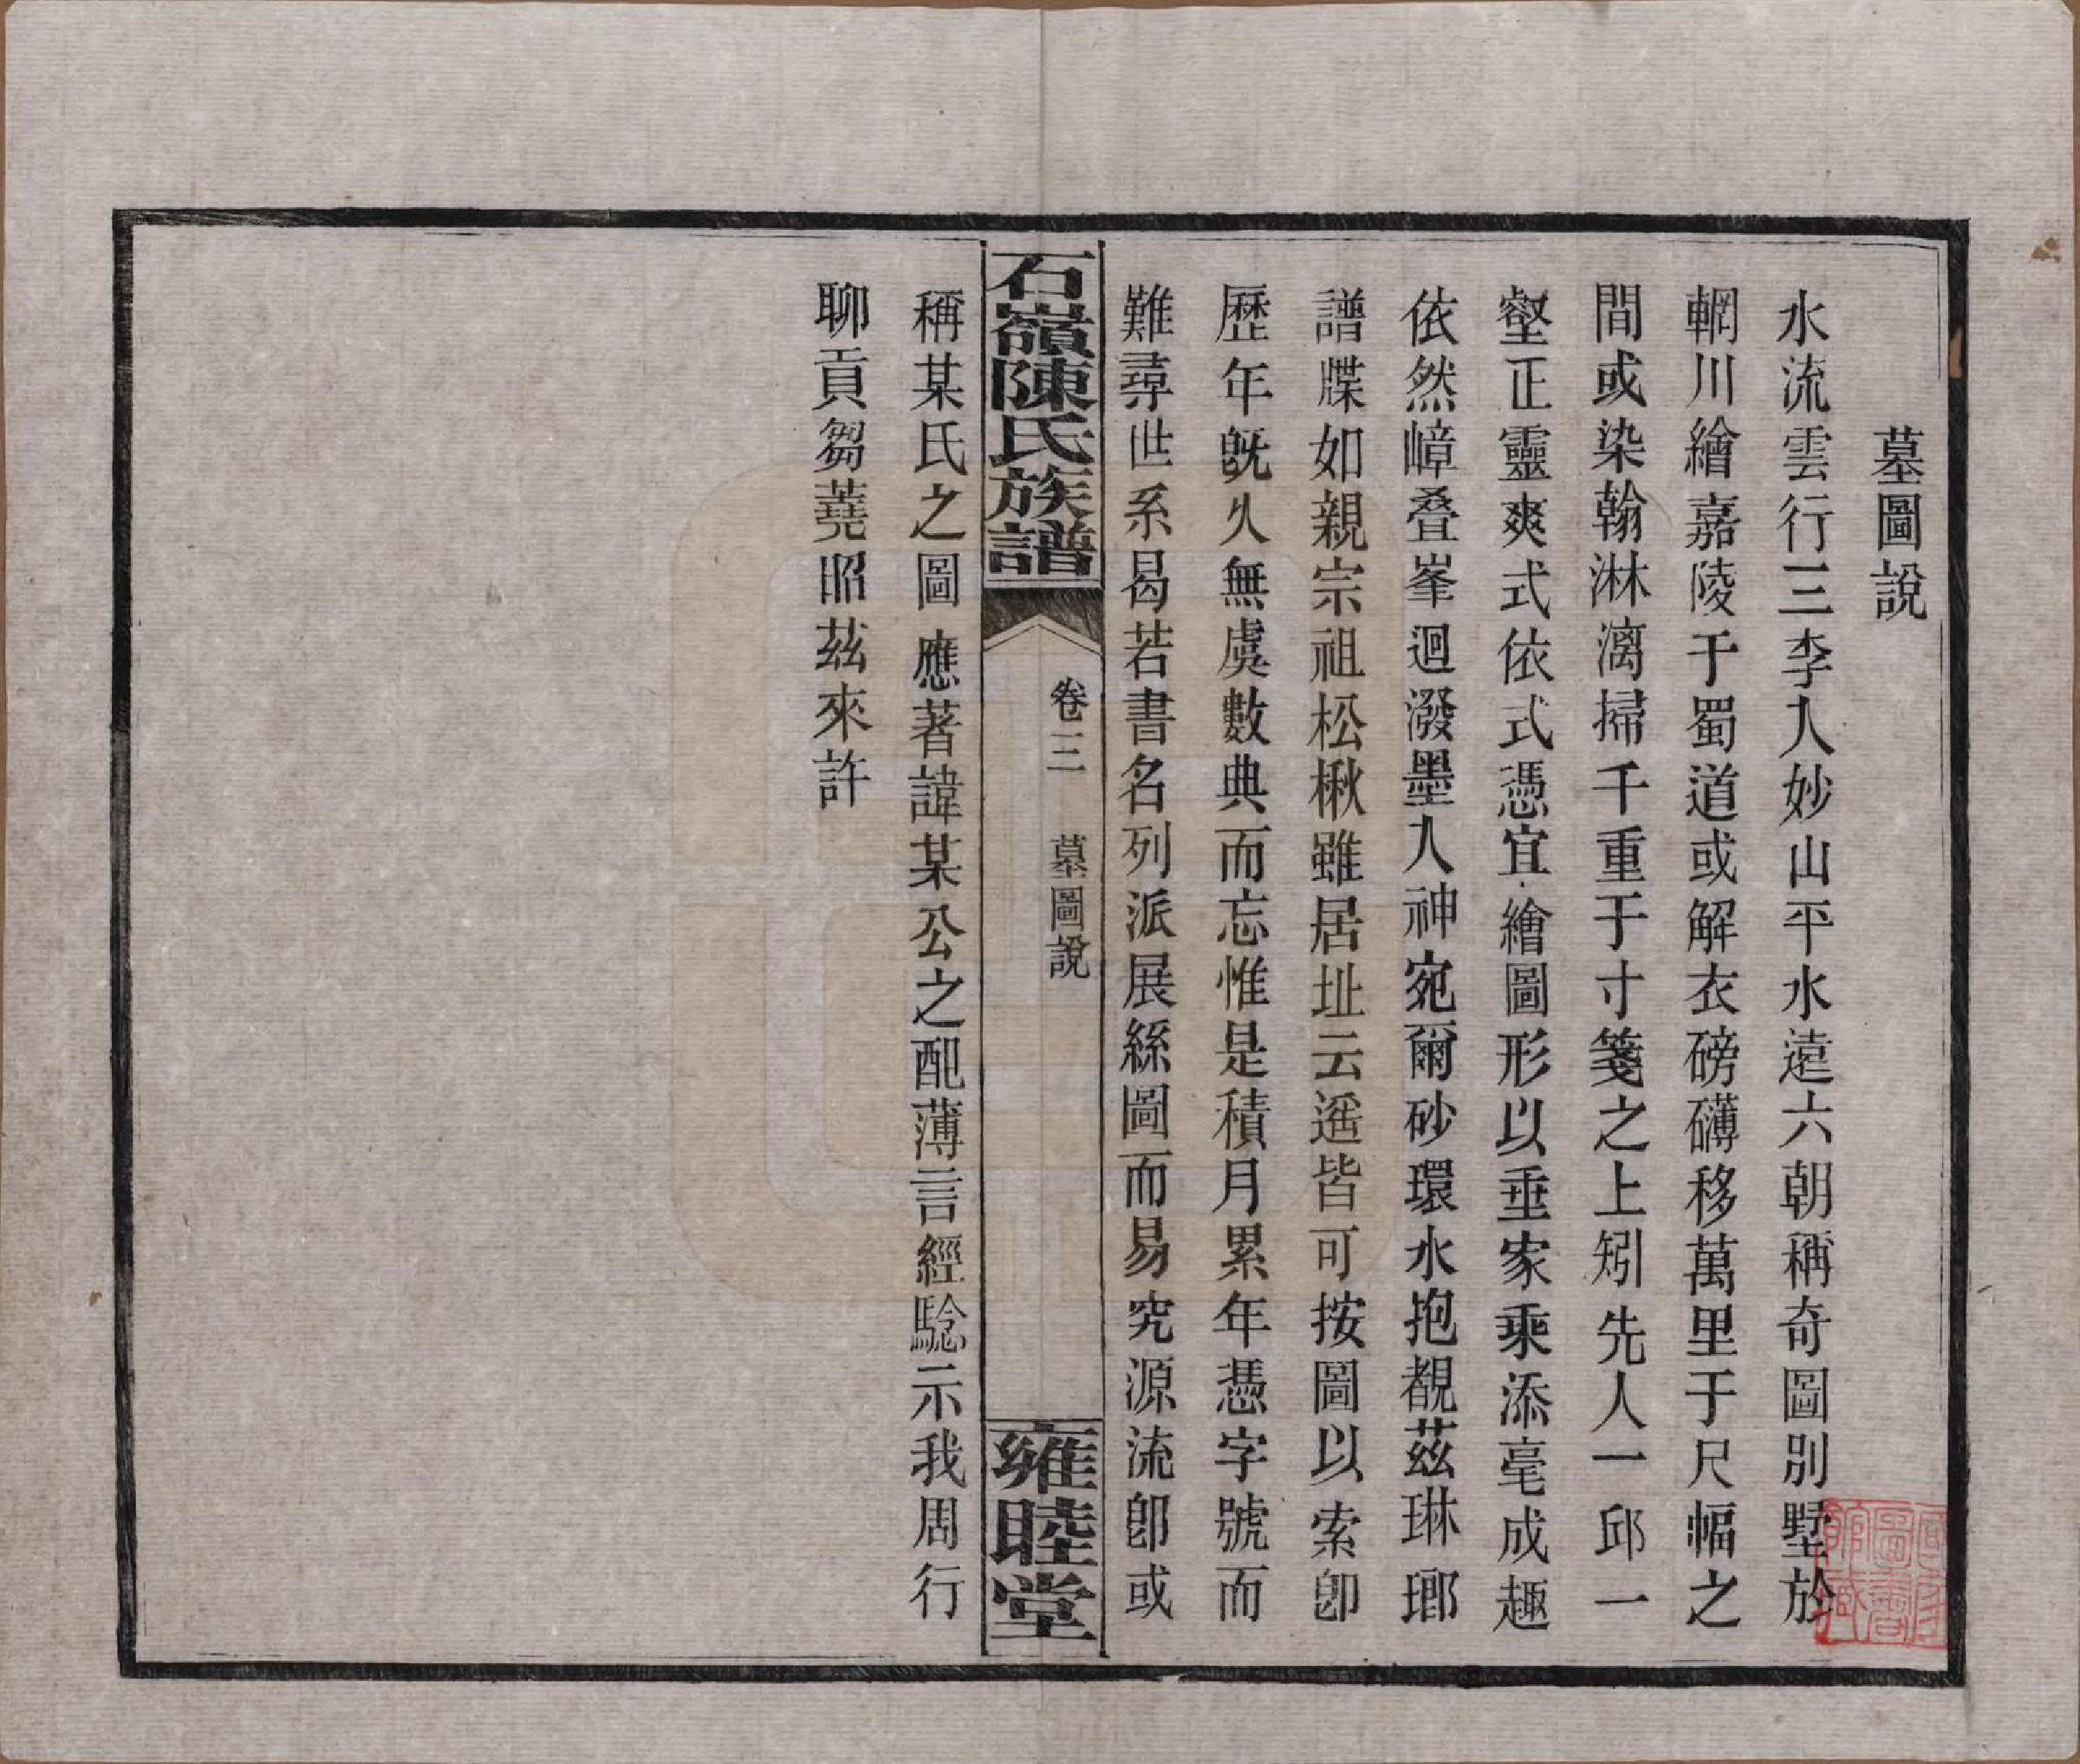 墓圖說
水流雲行三李人妙山平水遠六朝稱奇圖別墅於
輞川繪嘉陵于蜀道或解衣磅礴移萬里于尺幅之
間或染翰淋漓掃千重于寸箋之上矧先人一邱一
壑正靈爽式依式憑宜繪圖形以垂家乘添毫成趣
依然嶂叠峯迴潑墨人神宛爾砂環水抱覩茲琳瑯
譜牒如親宗祖松楸雖居址云遥皆可按圖以索卽
歷年旣久無虞數典而忘惟是積月累年憑字號而
難尋世系曷若書名列派展絲圖而易究源流卽或
石嶺陳氏族譜
卷三 墓圖說
雍睦堂
稱某氏之圖應著諱某公之配薄言經騐示我周行
聊貢芻蕘昭茲來許
國家圖書館藏